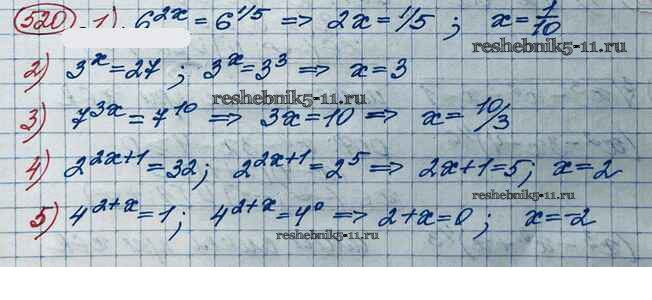 520 1) 6^{2x} = 6^{1/5} => 2x = 1/5 ; x = 1/10
reshebnik5-11.ru
2) 3^x = 27 ; 3^x = 3^3 => x = 3
reshebnik5-11.ru
3) 7^{3x} = 7^{10} => 3x = 10 => x = 10/3
4) 2^{2x+1} = 32; 2^{2x+1} = 2^5 => 2x+1 = 5; x = 2
reshebnik5-11.ru
5) 4^{2+x} = 1; 4^{2+x} = 4^0 => 2+x = 0 ; x = -2
reshebnik5-11.ru